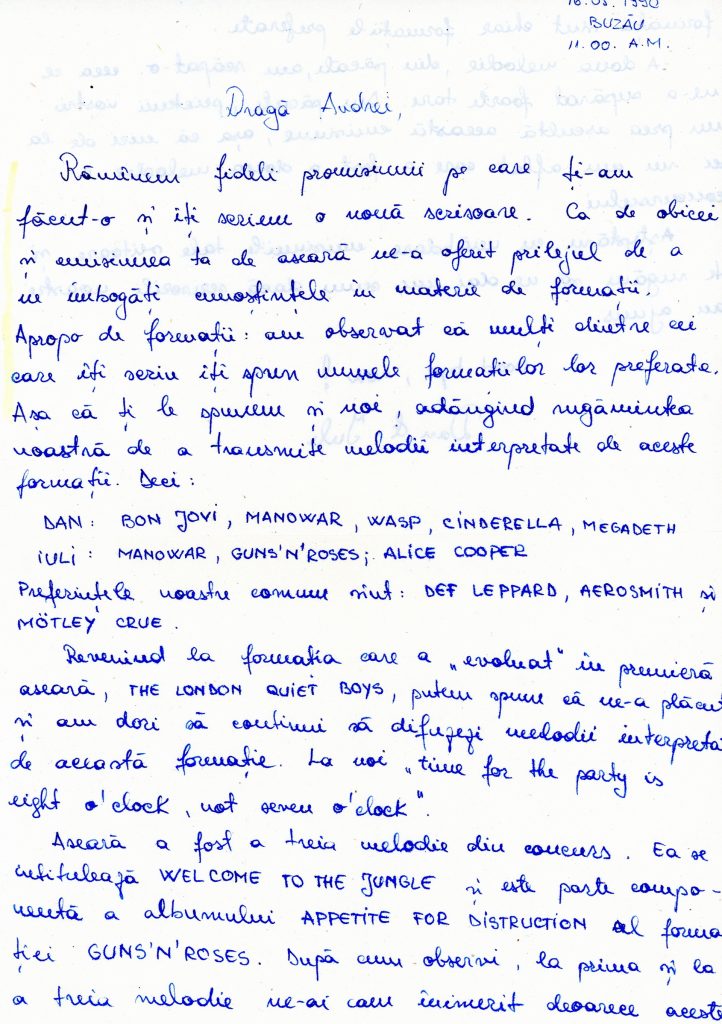 16.05.1990
BUZĂU
11.00. A.M.
Dragă Andrei,
Rămînem fideli promisiunii pe care ți-am
făcut-o și iți scriem o nouă scrisoare. Ca de obicei
și emisiunea ta de aseară ne-a oferit prilejul de a
ne imbogăți cunoștințele în materie de formații.
Apropo de formații: am observat că mulți dintre cei
care iți scriu iți spun numele formațiilor lor preferate.
Așa că ți le spunem și noi, adăugind rugămintea
noastră de a transmite melodii interpretate de aceste
formații. Deci:
DAN: BON JOVI, MANOWAR, WASP, CINDERELLA, MEGADETH
IULI: MANOWAR, GUNS'N'ROSES; ALICE COOPER
Preferințele noastre comune sint: DEF LEPPARD, AEROSMITH și
MÖTLEY CRUE.
Revenind la formatia care a „evoluat" în premieră
aseară, THE LONDON QUIET BOYS, putem spune că ne-a plăcut
și am dori să continui să difuzezi melodii interpreta
de această formație. La noi „time for the party is
eight o'clock, not seven o'clock".
Aseară a fost a treia melodie din concurs. Ea se
intitulează WELCOME TO THE JUNGLE și este parte compo-
nentă a albumului APPETITE FOR DISTRUCTION al forma
ției GUNS'N'ROSES. După cum observi, la prima și la
a treia melodie ne-ai cam înimerit deoarece aceste